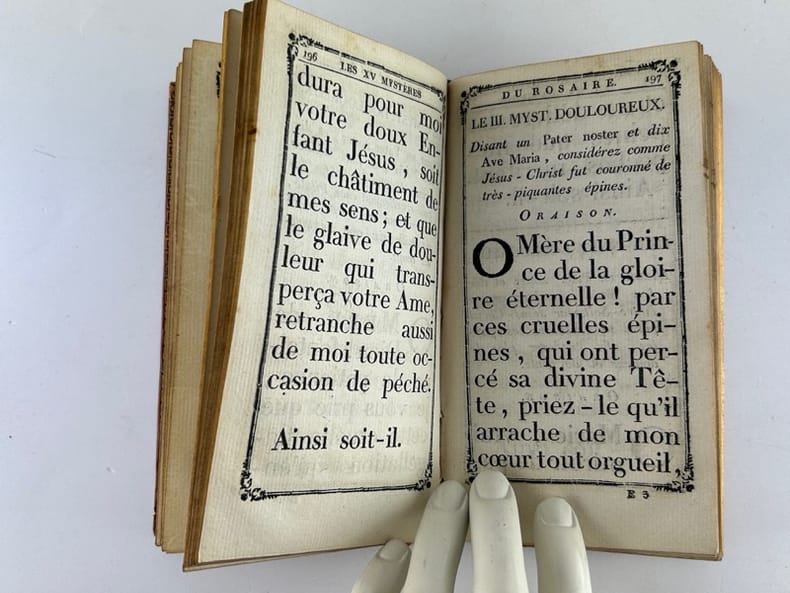 196 LES XV MYSTERES
dura pour moi
votre doux En-
fant Jésus, soit
le châtiment de
mes sens; et que
le glaive de dou-
leur qui trans-
perça votre Ame,
retranche aussi
de moi toute oc-
casion de péché.
Ainsi soit-il.
DU ROSAIRE. 197
LE III. MYST. DOULOUREUX.
Disant un Pater noster et dix
Ave Maria, considérez comme
Jésus-Christ fut couronné de
très-piquantes épines.
ORAISON.
O Mère du Prin-
ce de la gloi-
re éternelle! par
ces cruelles épi-
nes, qui ont per-
cé sa divine Tê-
te, priez-le qu'il
arrache de mon
cœur tout orgueil,
E 3